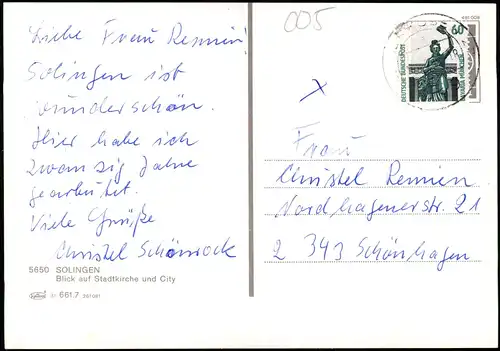 Liebe Frau Remien
Solingen ist
wunderschön.
Hier habe ich
zwanzig Jahre
gearbeitet.
Viele Grüße
Christel Schönrock
5650 SOLINGEN
Blick auf Stadtkirche und City
661.7
005
x
60
DEUTSCHE BUNDESPOST
BAVARIA MÜNCHEN
Frau
Christel Remien
Nordhagenerstr. 21
2 343 Schönhagen